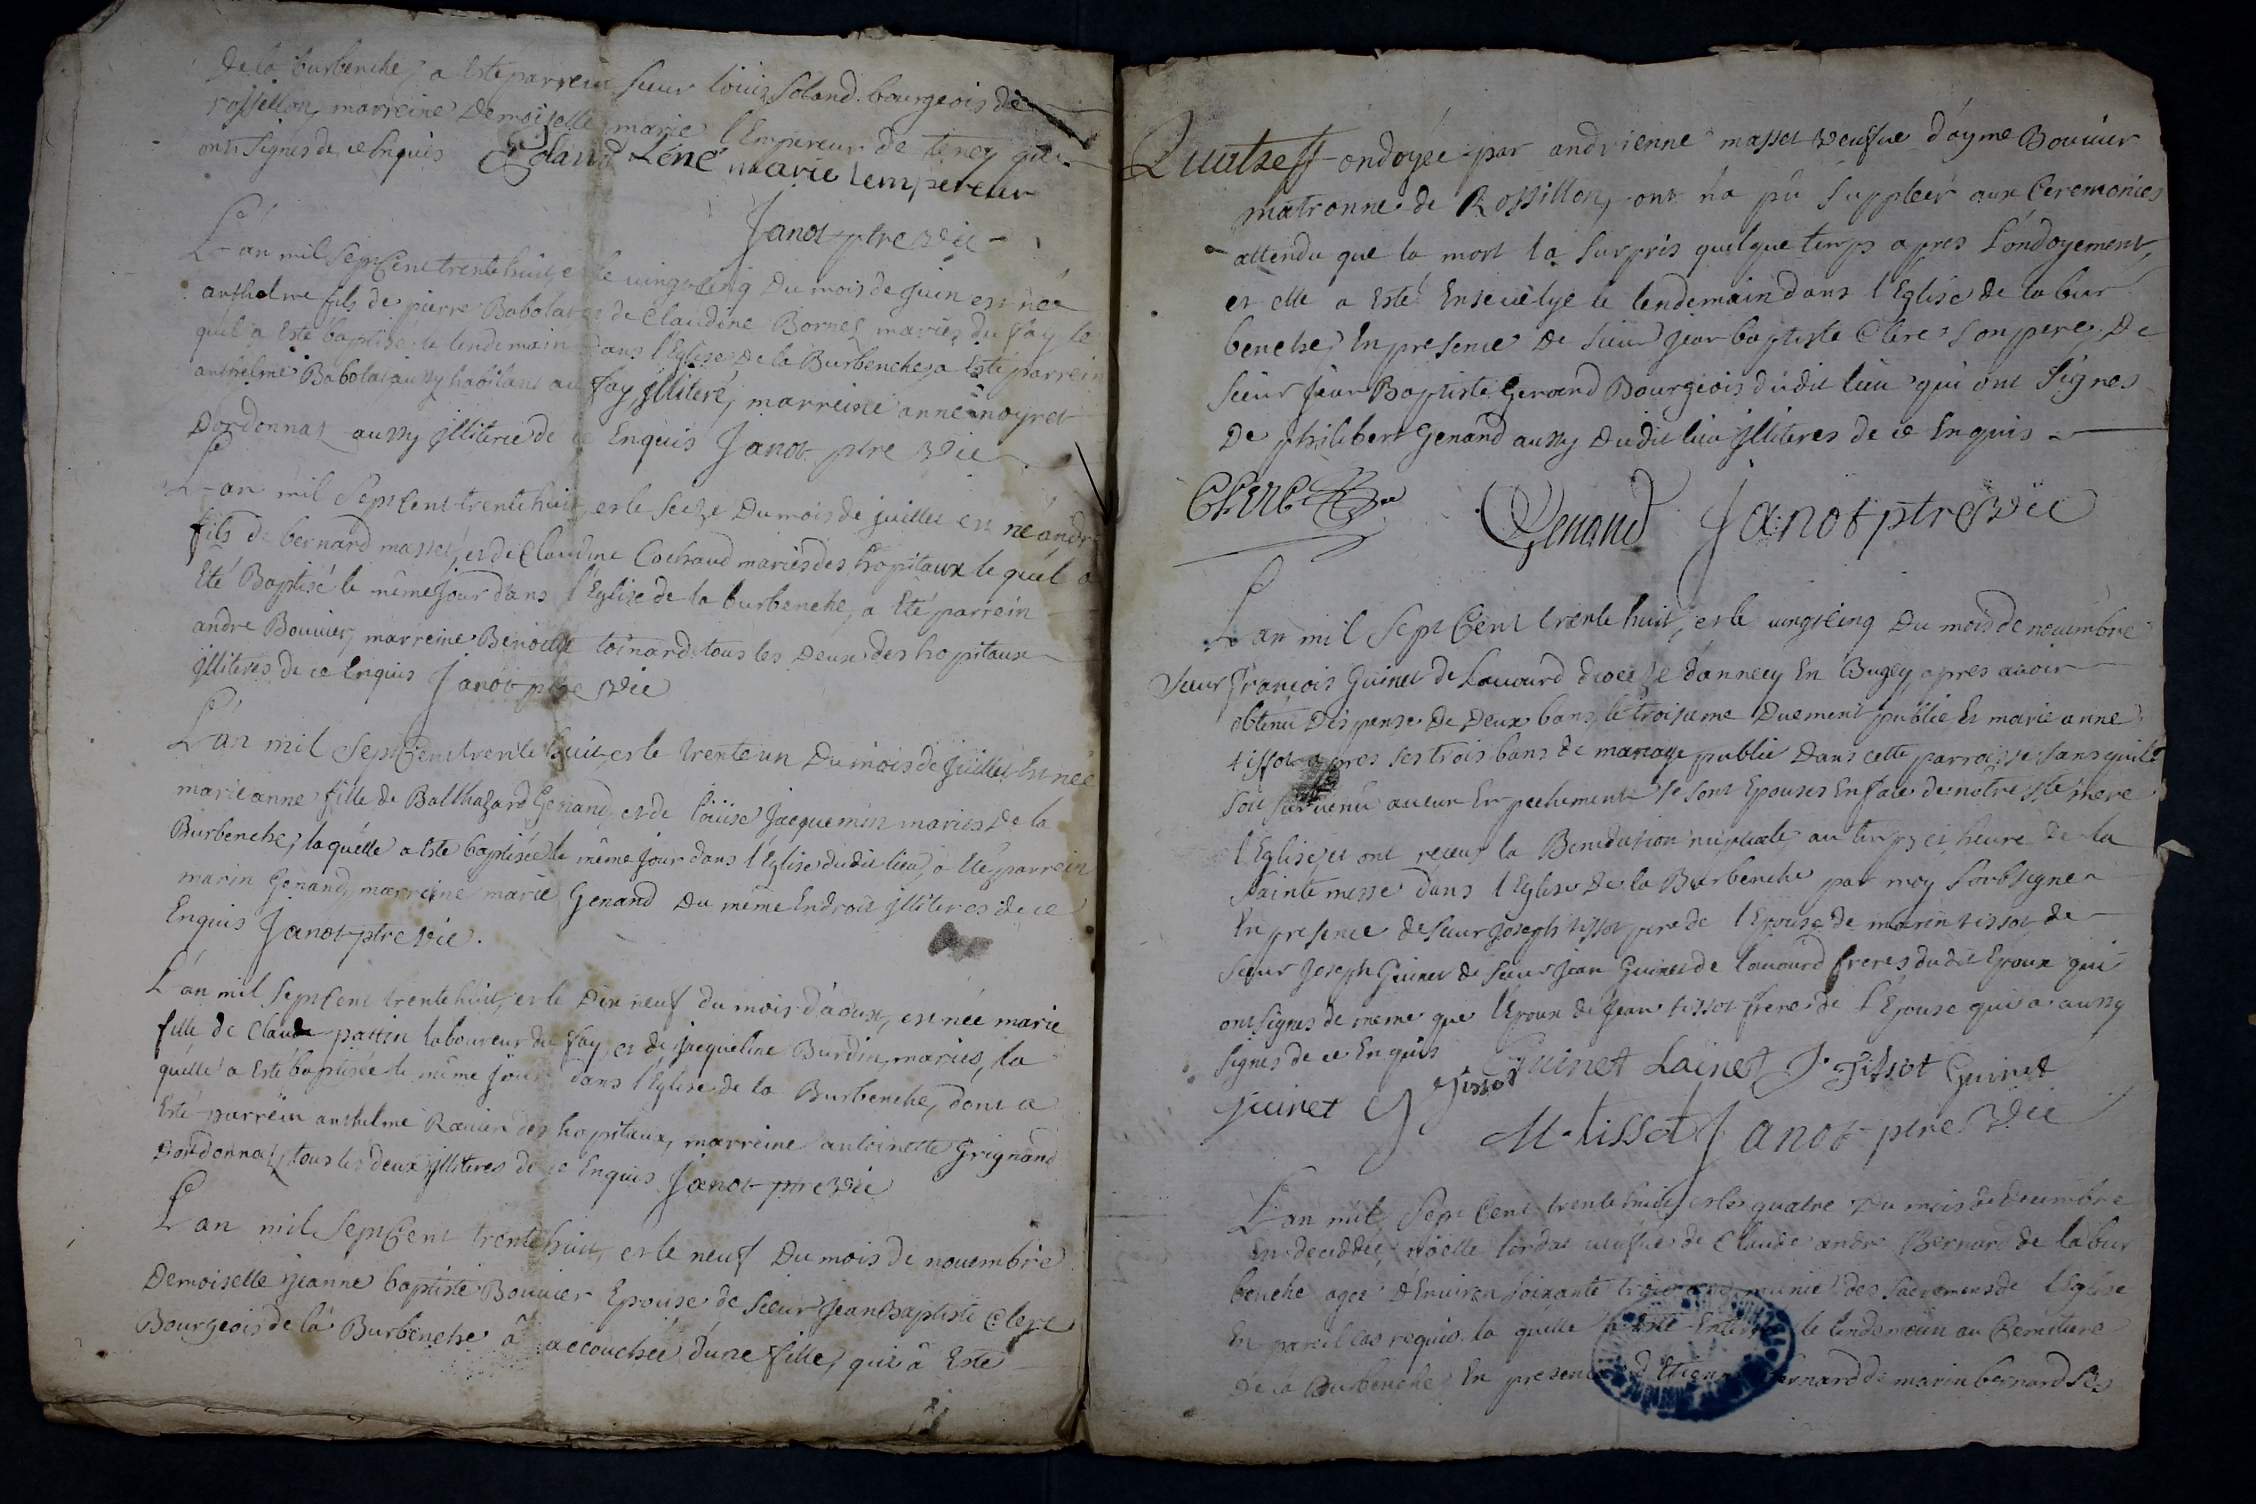 De la burbenche, a Esté parrein sieur loüis Soland bourgeois de
rossillon, marreine Demoiselle marie l'Empereur de teney qui
ont signes de ce Enquis Soland Léné marie lempereur
Janot ptre vic
L'an mil Sept Cent trente huit, et le vingt cinq Du mois de Juin est née
anthelme fils de pierre Babolat et de Claudine Bornet mariés du fay le
quel a Esté baptisé le lendemain dans l'Eglise De la Burbenche, a Esté parrein
anthelme Babolat aussy habitant au fay, jlliteré, marreine anne moyret
Dordonnas aussy jlliterée de ce Enquis Janot ptre vic
L'an mil Sept Cent trente huit, et le Seize Du mois de juillet est né andré
fils de bernard masset, et de Claudine Cochaud mariés des hopitaux le quel a
Eté Baptisé le même Jour dans l'Eglise de la burbenche, a Eté parrein
andre Bouvier, marreine Benoitte toinard tous les Deux des hopitaux
jlliteres de ce Enquis Janot ptre vic
L'an mil Sept Cent trente huit, et le trente un Du mois de Juillet Est née
marie anne fille de Balthazard Genand, et de loüise Jacquemin mariés De la
Burbenche, laquelle a Este baptisée le même Jour dans l'Eglise dudit lieu, a Eté parrein
marin Genand, marreine marie Genand Du même Endroit jlliteres de ce
Enquis Janot ptre vic.
L'an mil Sept Cent trente huit, et le Dix neuf du mois d'aoust, est née marie
fille de Claude pattin laboureur du fay, et de jacqueline Burdin, mariés, la
quelle a Esté baptisée le même Jour dans l'Eglise de la Burbenche, dont a
Esté parrein anthelme Ravier des hopitaux, marreine antoinette Grignand
Dordonnas, tous les deux jlliteres de ce Enquis Janot ptre vic
L'an mil Sept Cent trente huit, et le neuf Du mois de novembre
Demoiselle jeanne baptiste Bouvier Epouse de Sieur Jean Baptiste Clerc
Bourgeois de la Burbenche â accouchée dune fille, qui â Este
ondoyée par andrienne masset veufve d'ayme Bouvier
matronne de Rossillon, ont na pû suppleer aux Ceremonies
attendu que la mort la surpris quelque temps apres l'ondoyement,
et elle a Esté Ensevelye le lendemain dans l'Eglise de la bur
benche, En presence De sieur Jean baptiste Clerc son pere, De
Sieur Jean Baptiste Genand Bourgeois dudit lieu qui ont signes
De philibert Genand aussy Dudit lieu jlliteres de ce Enquis
Clerc Genand Janot ptre vic
L'an mil Sept Cent trente huit, et le vingt cinq Du mois de novembre
Sieur françois Guinet de Lavourd diocesse d'annecy En Bugey, apres avoir
obtenu Dispense De Deux bans, le troisieme Duement publie Et marie anne
tissot apres ses trois bans de mariage publie Dans cette parroisse sans quil
soit survenû aucun Enpechement se sont Epouses En face de nôtre ste mere
l'Eglise, et ont receus la Benediction nuptiale au temps et heure de la
sainte messe dans l'Eglise De la Burbenche par moy soubsigne
En presence de sieur Joseph tissot pere de l'Epouse de marin tissot de
Sieur Joseph Guinet de sieur Jean Guinet de lavourd freres dudit Epoux qui
ont signes de même que l'Epoux de Jean tissot frere de l'Epouse qui a aussy
signes de ce Enquis Guinet Lainet J. Tissot Guinet
guinet J Tissot
M. tissot Janot ptre vic
L'an mil Sept Cent trente huit, et le quatre Du mois de decembre
En decedée, noelle tordat veufve de Claude andré Bernard de la bur
benche agée d'Environ soixante munie des sacremens de l'Eglise
En pareil cas requis, la quelle a Este Enterrée le lendemain au Cemitiere
de la Burbenche, En presence d'Etienne bernard de marin bernard ses